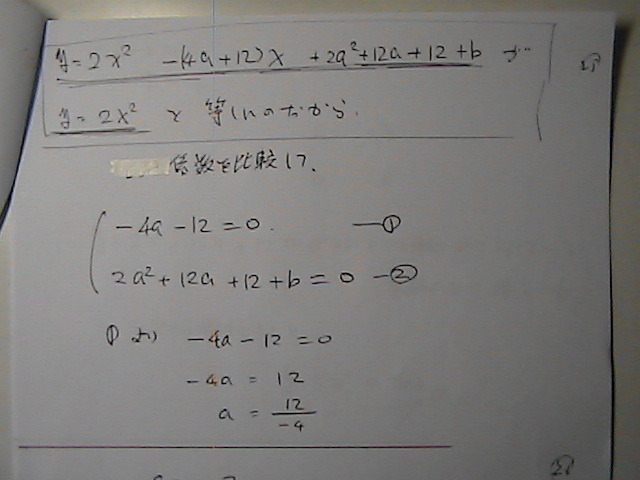 y=2x² -(4a+12)x +2a²+12a+12+b が
y=2x² と 等しいのだから。
係数を比較して、
-4a-12=0. —①
2a²+12a+12+b=0 —②
①より -4a-12=0
-4a = 12
a = 12/-4